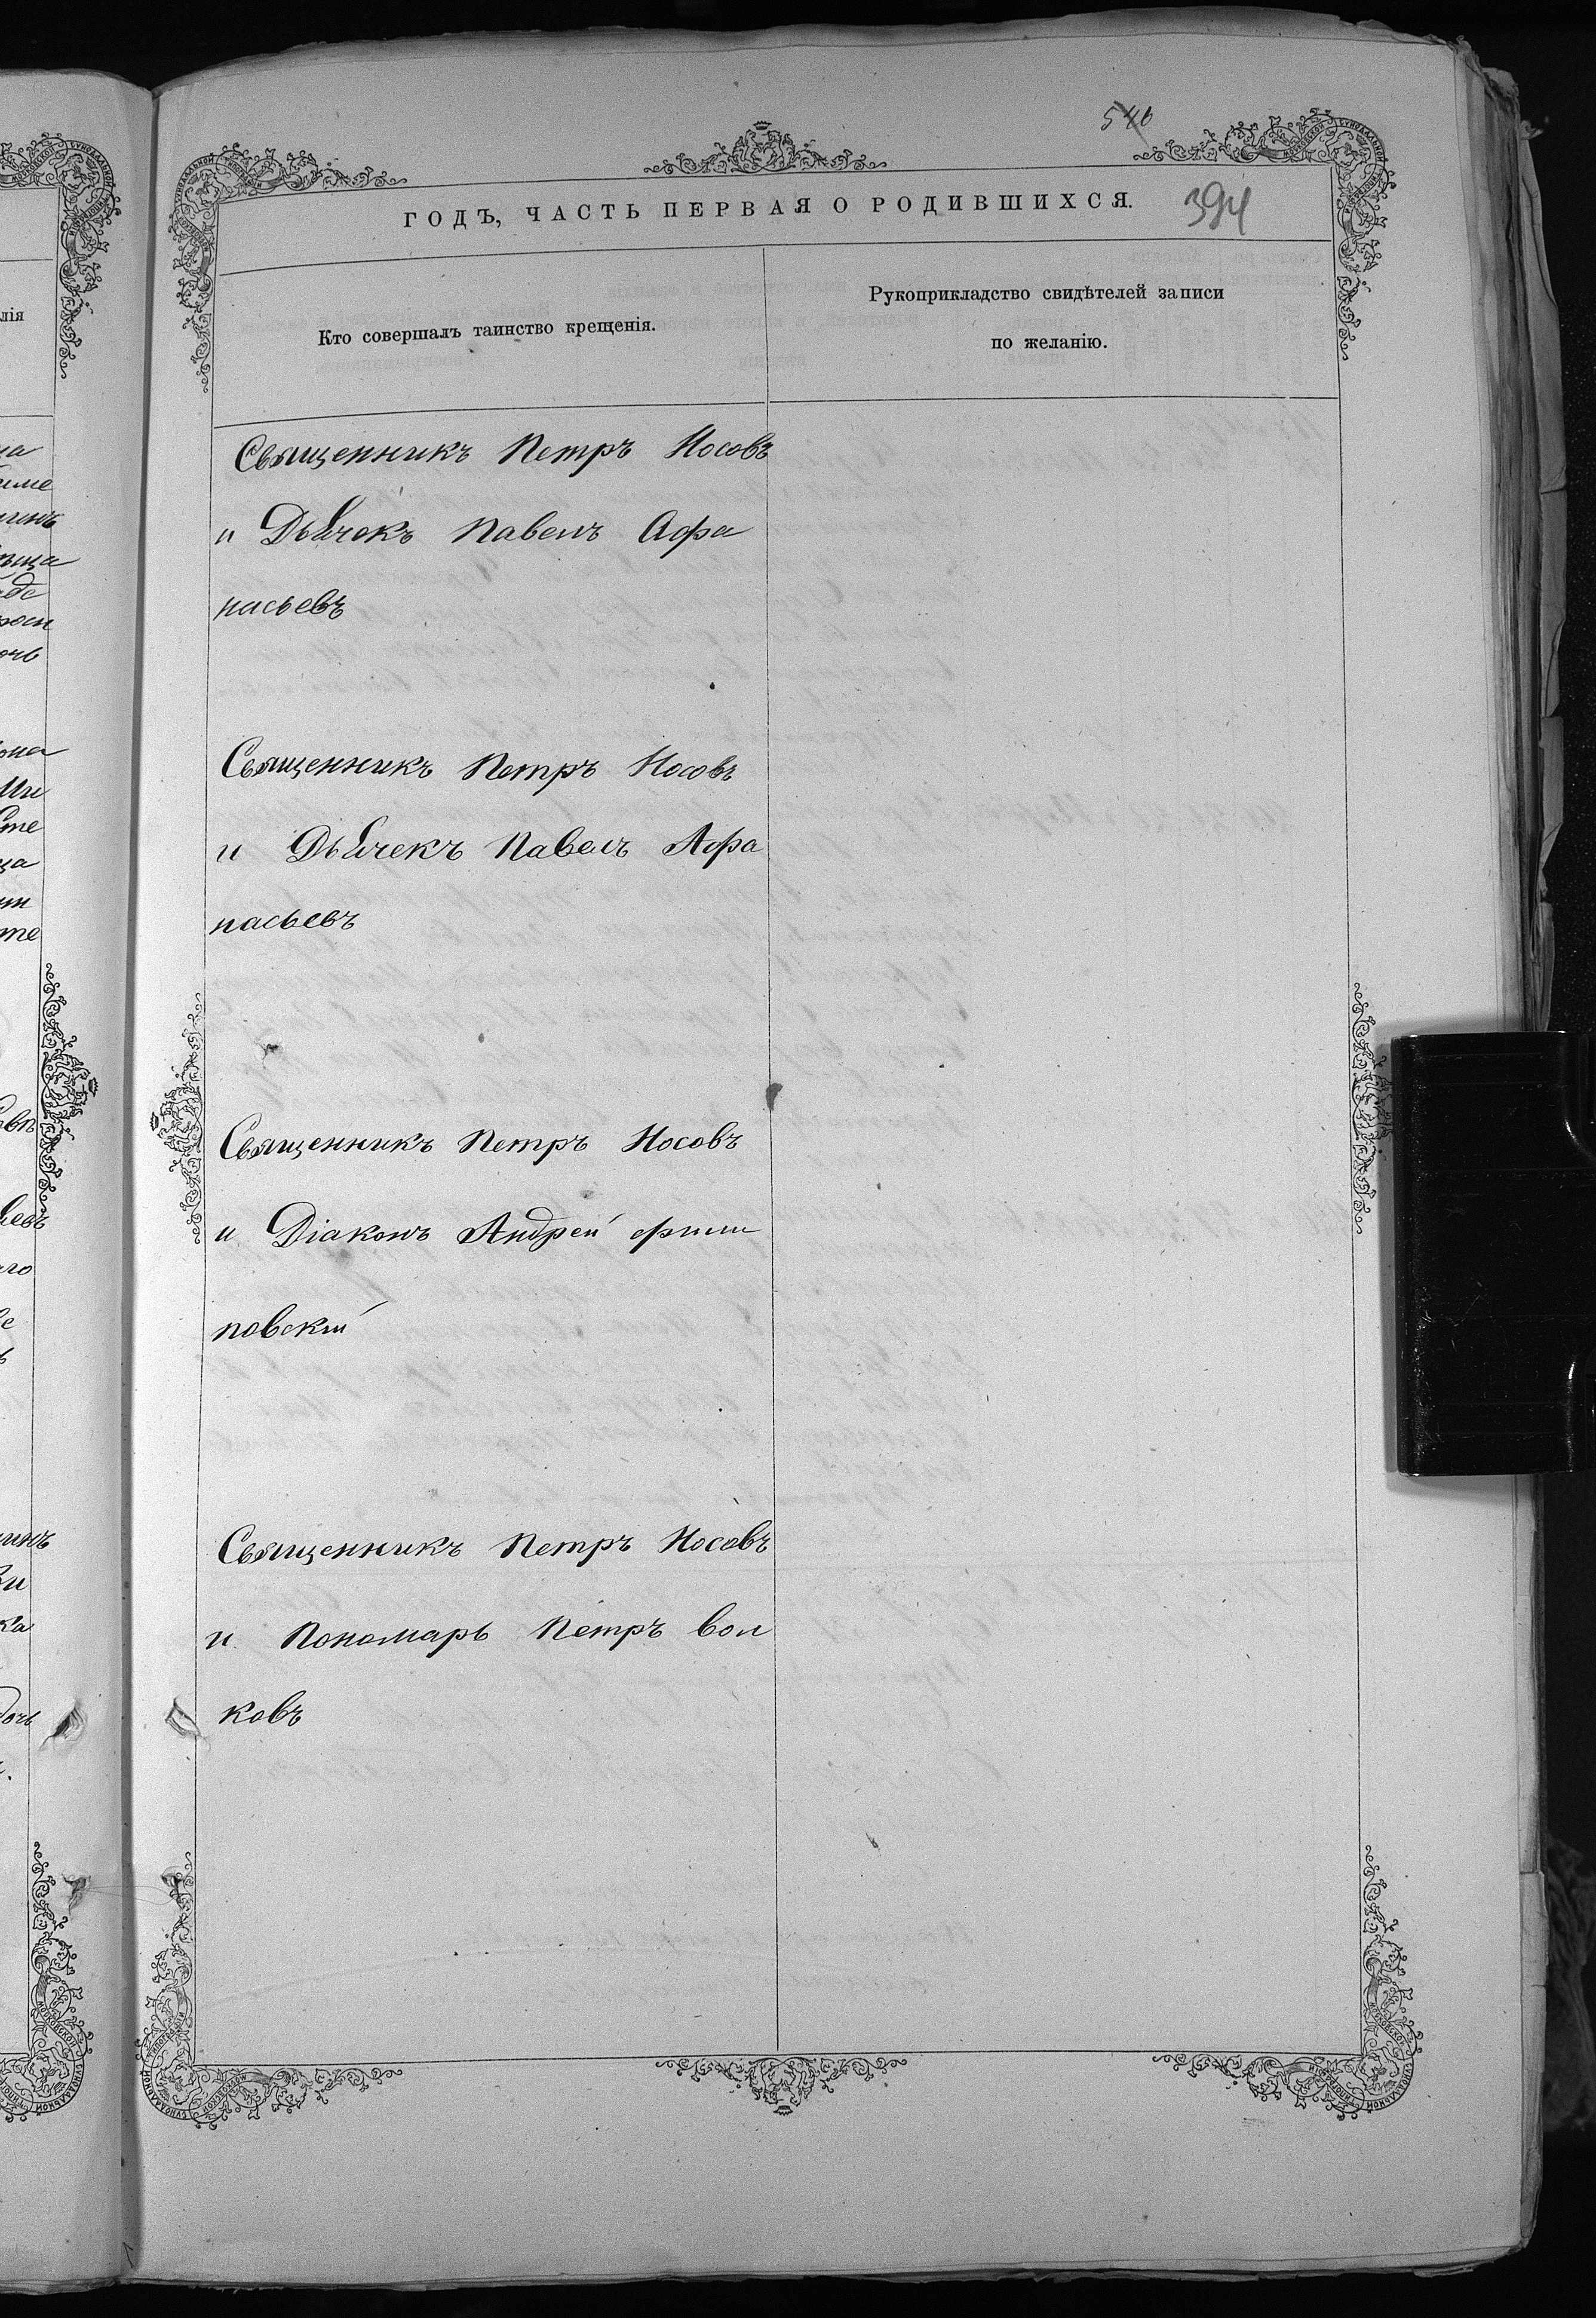 546
ГОДЪ, ЧАСТЬ ПЕРВАЯ О РОДИВШИХСЯ.
394
Кто совершалъ таинство крещенія.
Рукоприкладство свидѣтелей записи
по желанію.
Священникъ Петръ Носовъ
и Дьячекъ Павелъ Афа
насьевъ
Священникъ Петръ Носовъ
и Дьячекъ Павелъ Афа
насьевъ
Священникъ Петръ Носовъ
и Діаконъ Андрей Фили
повскій
Священникъ Петръ Носовъ
и Пономарь Петръ Вол
ковъ